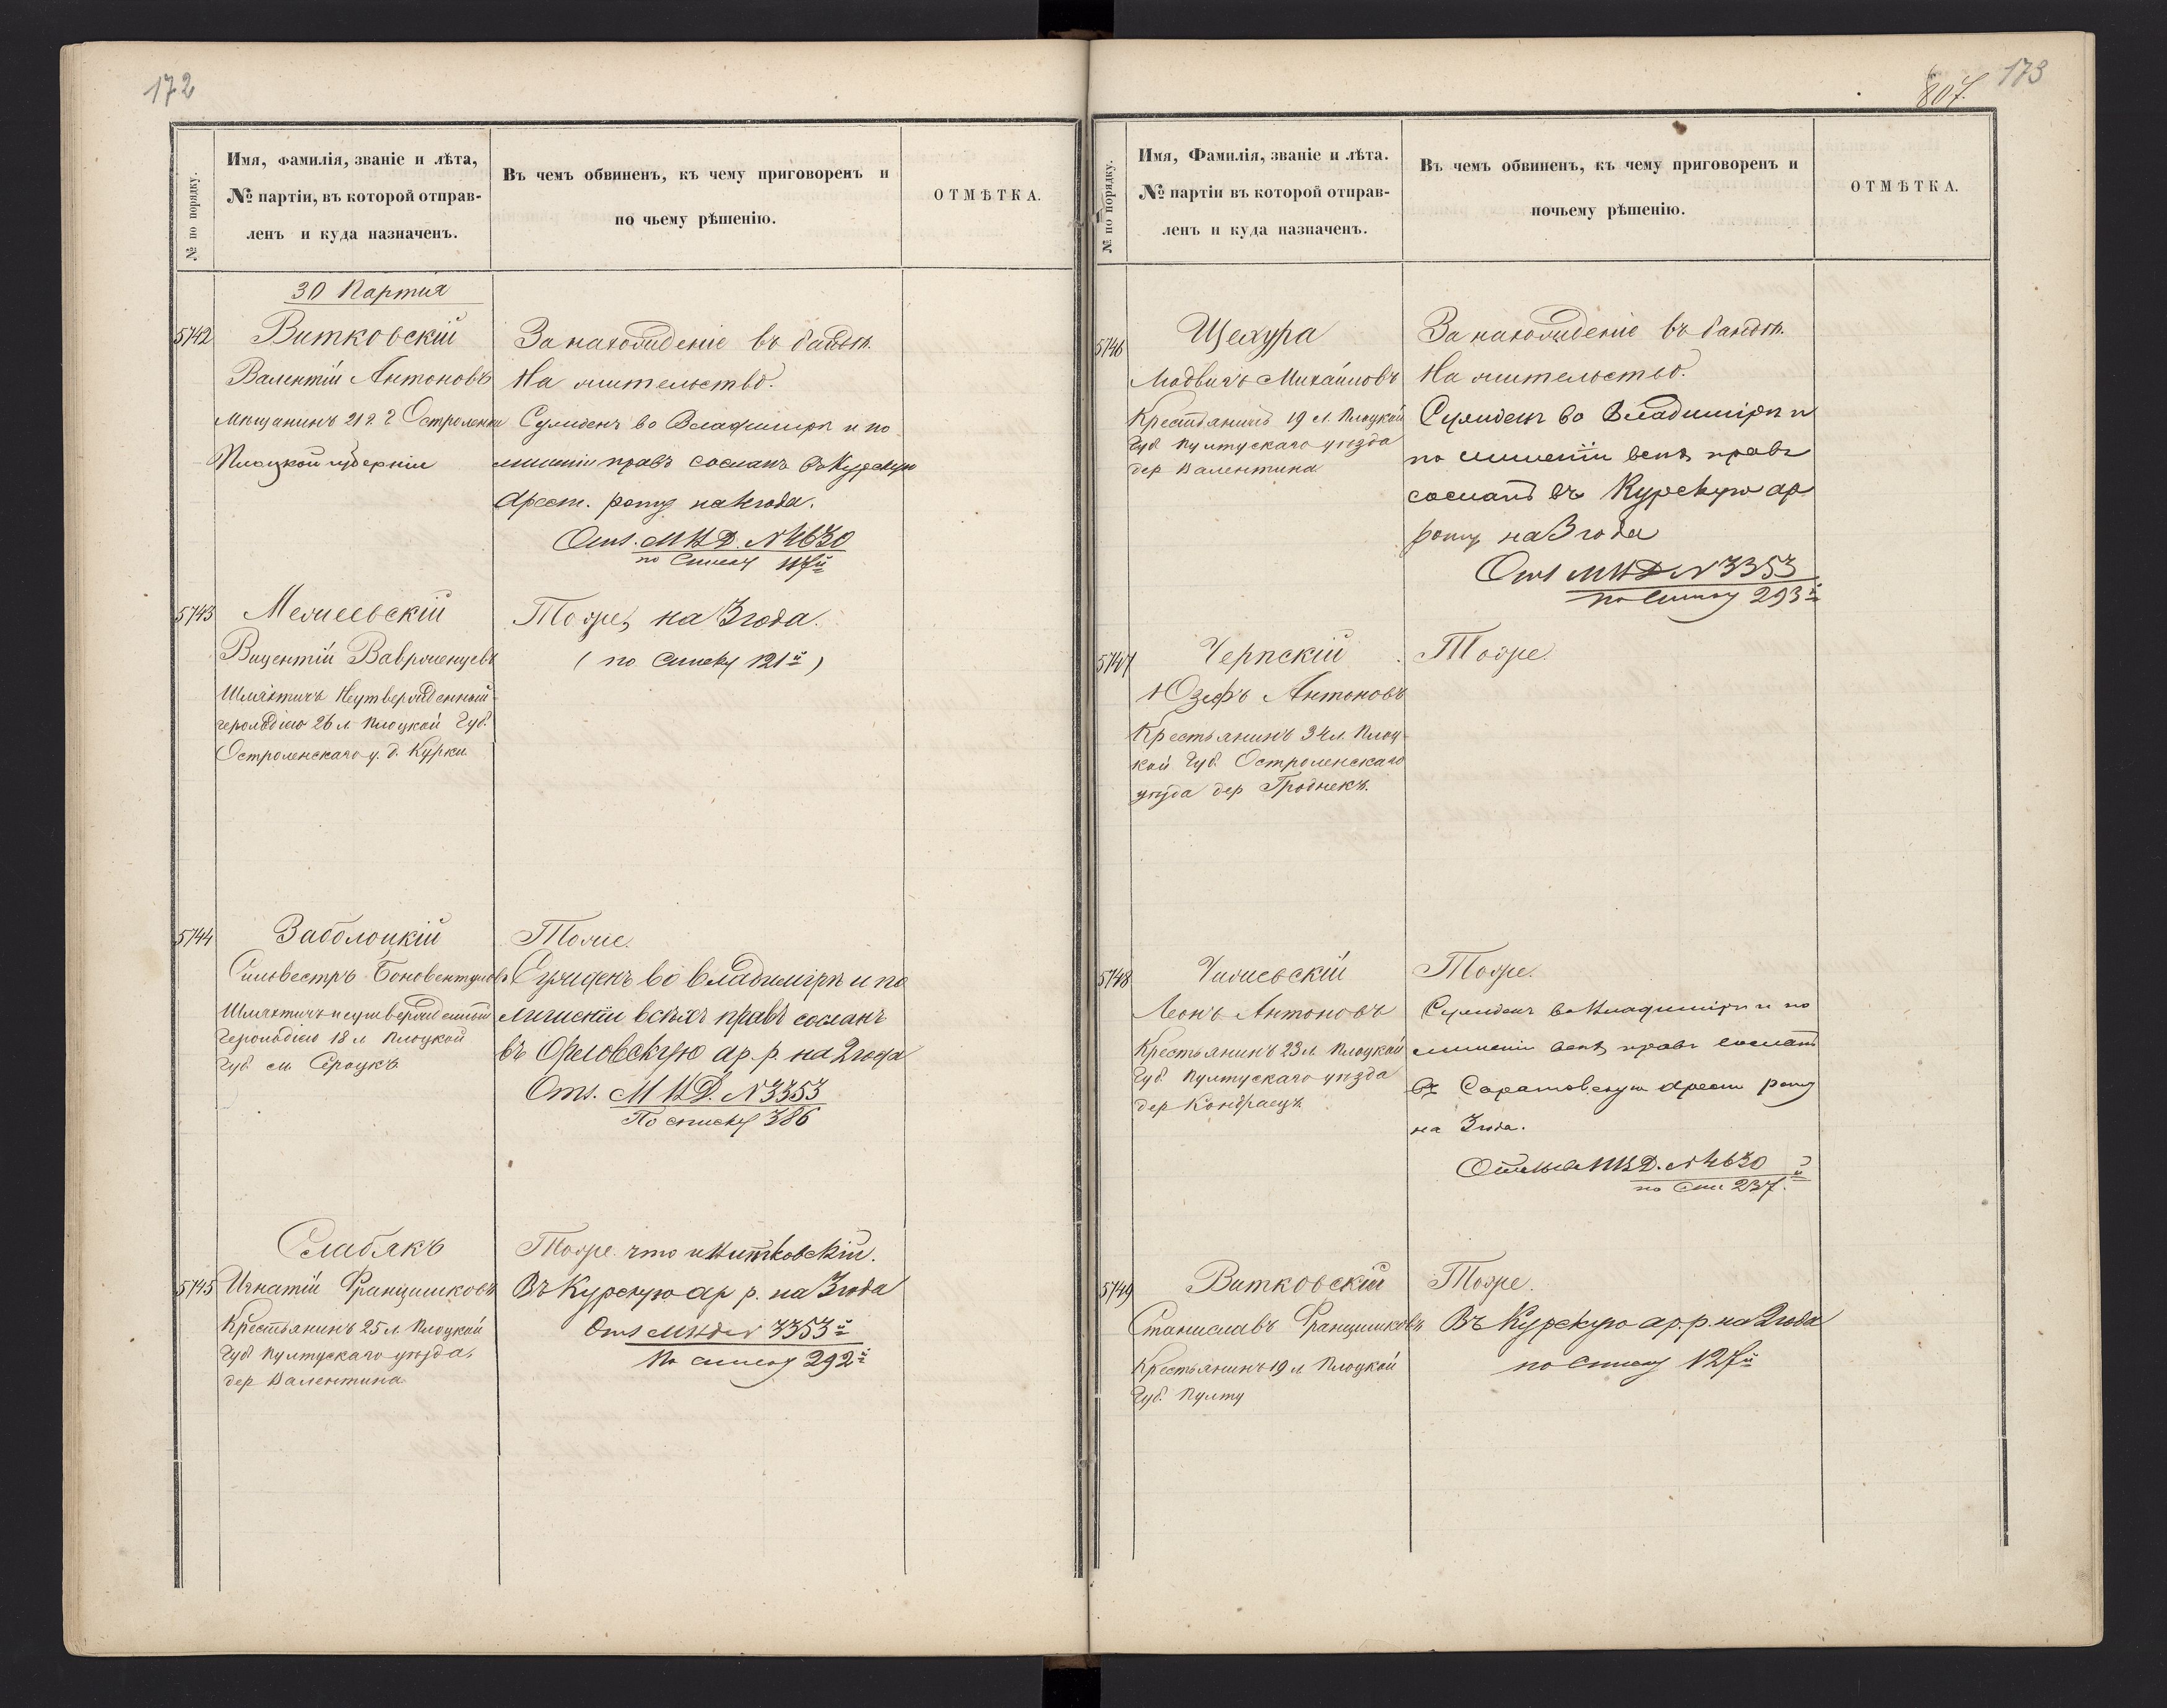 172
№ по порядку.
Имя, фамилія, званіе и лѣта,
№ партіи, въ которой отправ-
ленъ и куда назначенъ.
Въ чемъ обвиненъ, къ чему приговоренъ и
по чьему рѣшенію.
ОТМѢТКА.
30 Партия
5742
Витковскій
Валентій Антоновъ
Мѣщанинъ 21 г. г Остроленки
Плоцкой губерніи
За нахожденіе въ бандѣ.
На жительство.
Сужденъ во Владимирѣ и по
лишеніи правъ сосланъ въ Курскую
Арест. роту на 4 года.
Отз. М В Д. № 4630
по списку 117й
5743
Вицентій Вавроженцевъ
Шляхтичъ Неутвержденный
герольдіею 26 л Плоцкой Губ.
Остроленскаго у. д. Курки
Тоже, на 3 года.
( по списку 121й )
5744
Заболоцкій
Сильвестръ Боновентуровъ
Шляхтичъ неутвержденный
Герольдіею 18 л Плоцкой
Губ. м. Сероцкъ
Тоже.
Сужденъ во Владимірѣ и по
лишеніи всѣхъ правъ сосланъ
въ Орловскую ар. р. на 2 года
Отз. М В Д. № 3353
По списку 386
Слабякъ
5745 Игнатій Францишковъ
Крестьянинъ 25 л. Плоцкой
Губ Пултускаго уѣзда,
дер Валентина
Тоже что и Витковскій.
Въ Курскую ар р. на 3 года
Отз МВД № 3353й
По списку 292й
173
807.
№ по порядку.
Имя, Фамилія, званіе и лѣта.
№ партіи въ которой отправ-
ленъ и куда назначенъ.
Въ чемъ обвиненъ, къ чему приговоренъ и
почьему рѣшенію.
ОТМѢТКА.
5746
Щехура
Людвигъ Михайловъ
Крестьянинъ 19 л. Плоцкой
Губ Пултускаго уѣзда
дер Валентина
За нахожденіе въ бандѣ.
На жительство.
Сужденъ во Владимірѣ и
по лишеніи всѣхъ правъ
сосланъ въ Курскую ар
роту на 3 года
Отз МВД № 3353
по списку 293й
5747
Черпскій
Юзефъ Антоновъ
Крестьянинъ 34 л. Плоц-
кой Губ. Остроленскаго
уѣзда дер Гроднекъ.
Тоже.
5748
Леонъ Антоновъ
Крестьянинъ 23 л. Плоцкой
Губ. Пултускаго уѣзда
дер Кондраецъ
Тоже.
Сужденъ во Владимірѣ и по
лишеніи всѣхъ правъ сосланъ
въ Саратовскую арест роту
на 3 года.
МВД. № 4630
по Спи 237.й
5749
Витковскій
Станиславъ Францишковъ
Крестьянинъ 19 л Плоцкой
Губ. Пулту
Тоже.
Въ Курскую ар. р. на 2 года
по списку 127й